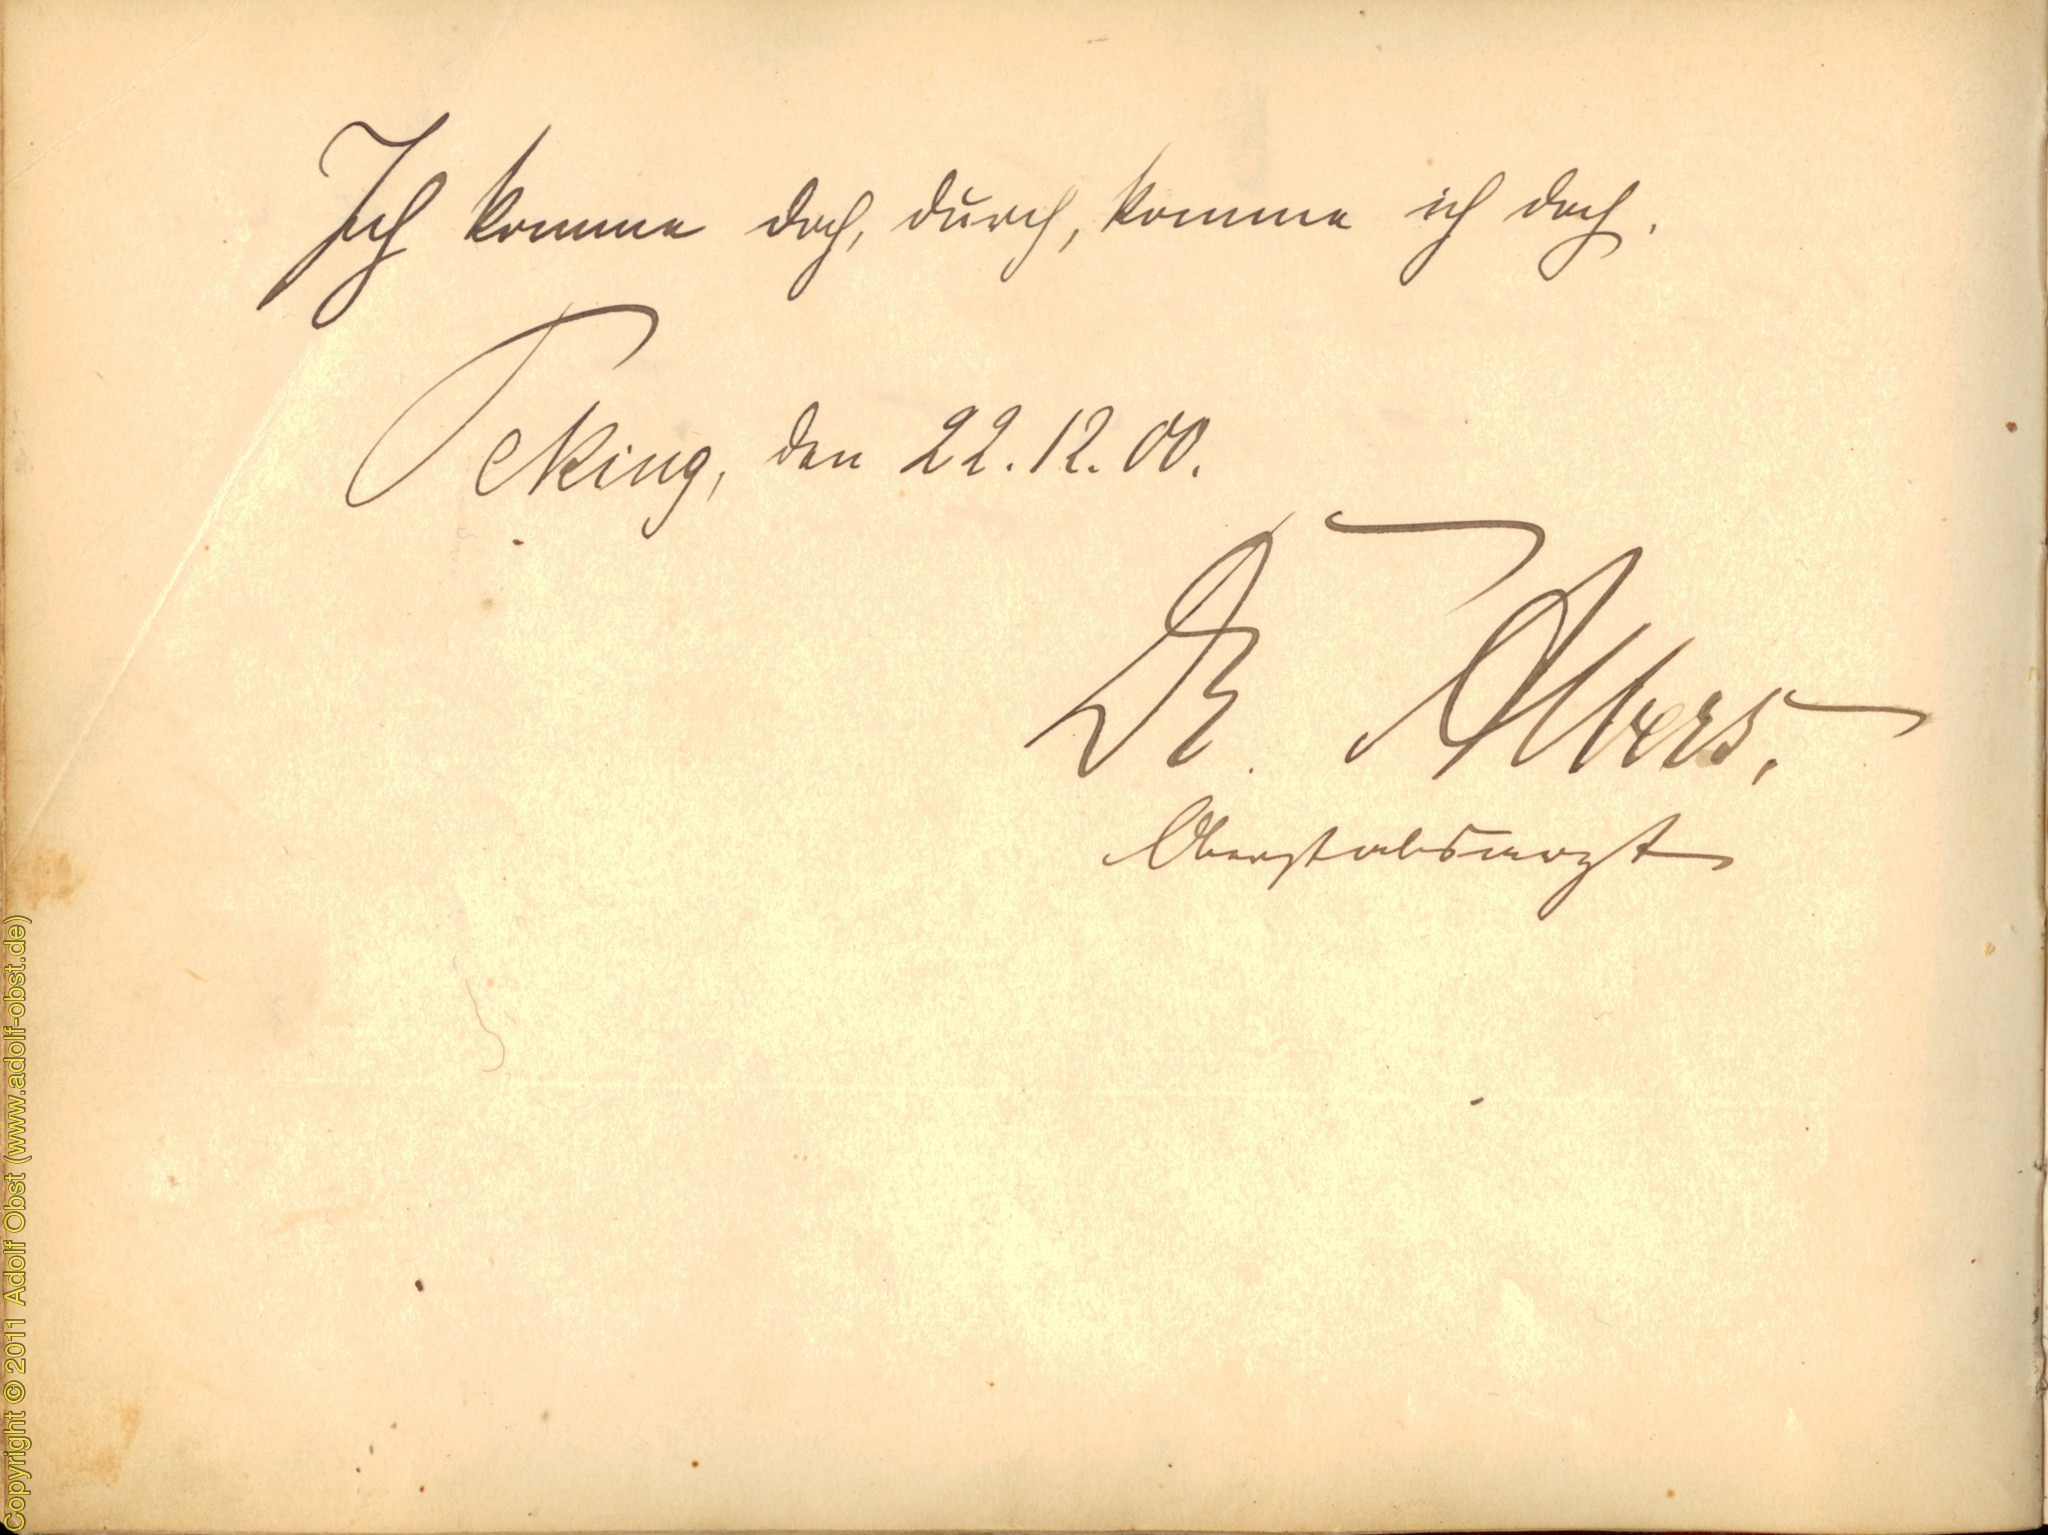 Ich komme doch, durch, komme ich doch.
Peking, den 22.12.00.
Dr. Albers,
Oberstabsarzt
Copyright © 2011 Adolf Obst (www.adolf-obst.de)